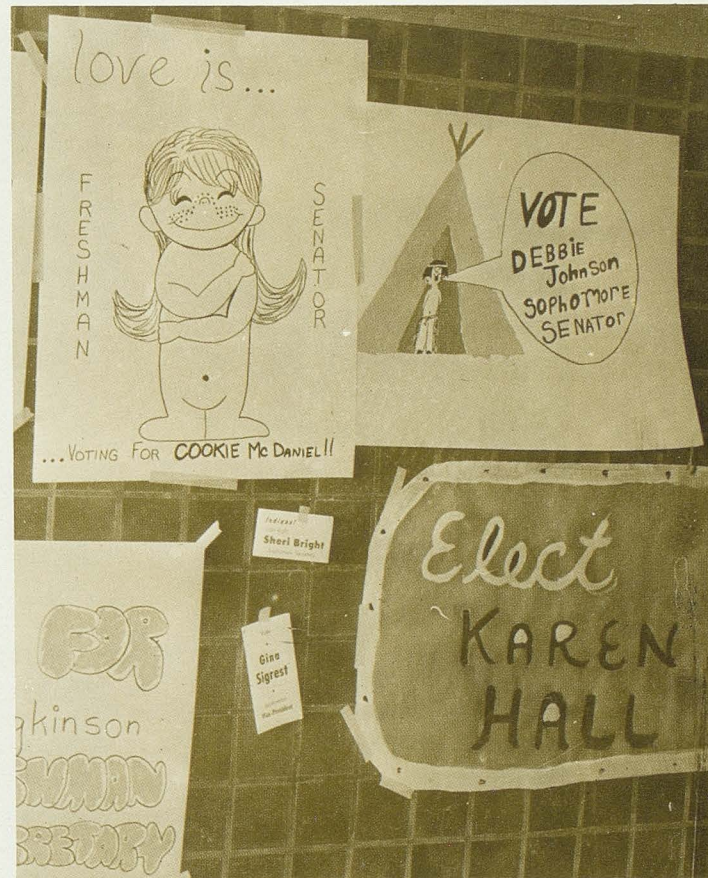 love is...
FRESHMAN
SENATOR
...VOTING FOR COOKIE McDANIEL!!
VOTE
DEBBIE
Johnson
SOPHOMORE
SENATOR
Sheri Bright
Gina
Sigrest
Vice President
Elect
KAREN
HALL
FOR
kinson